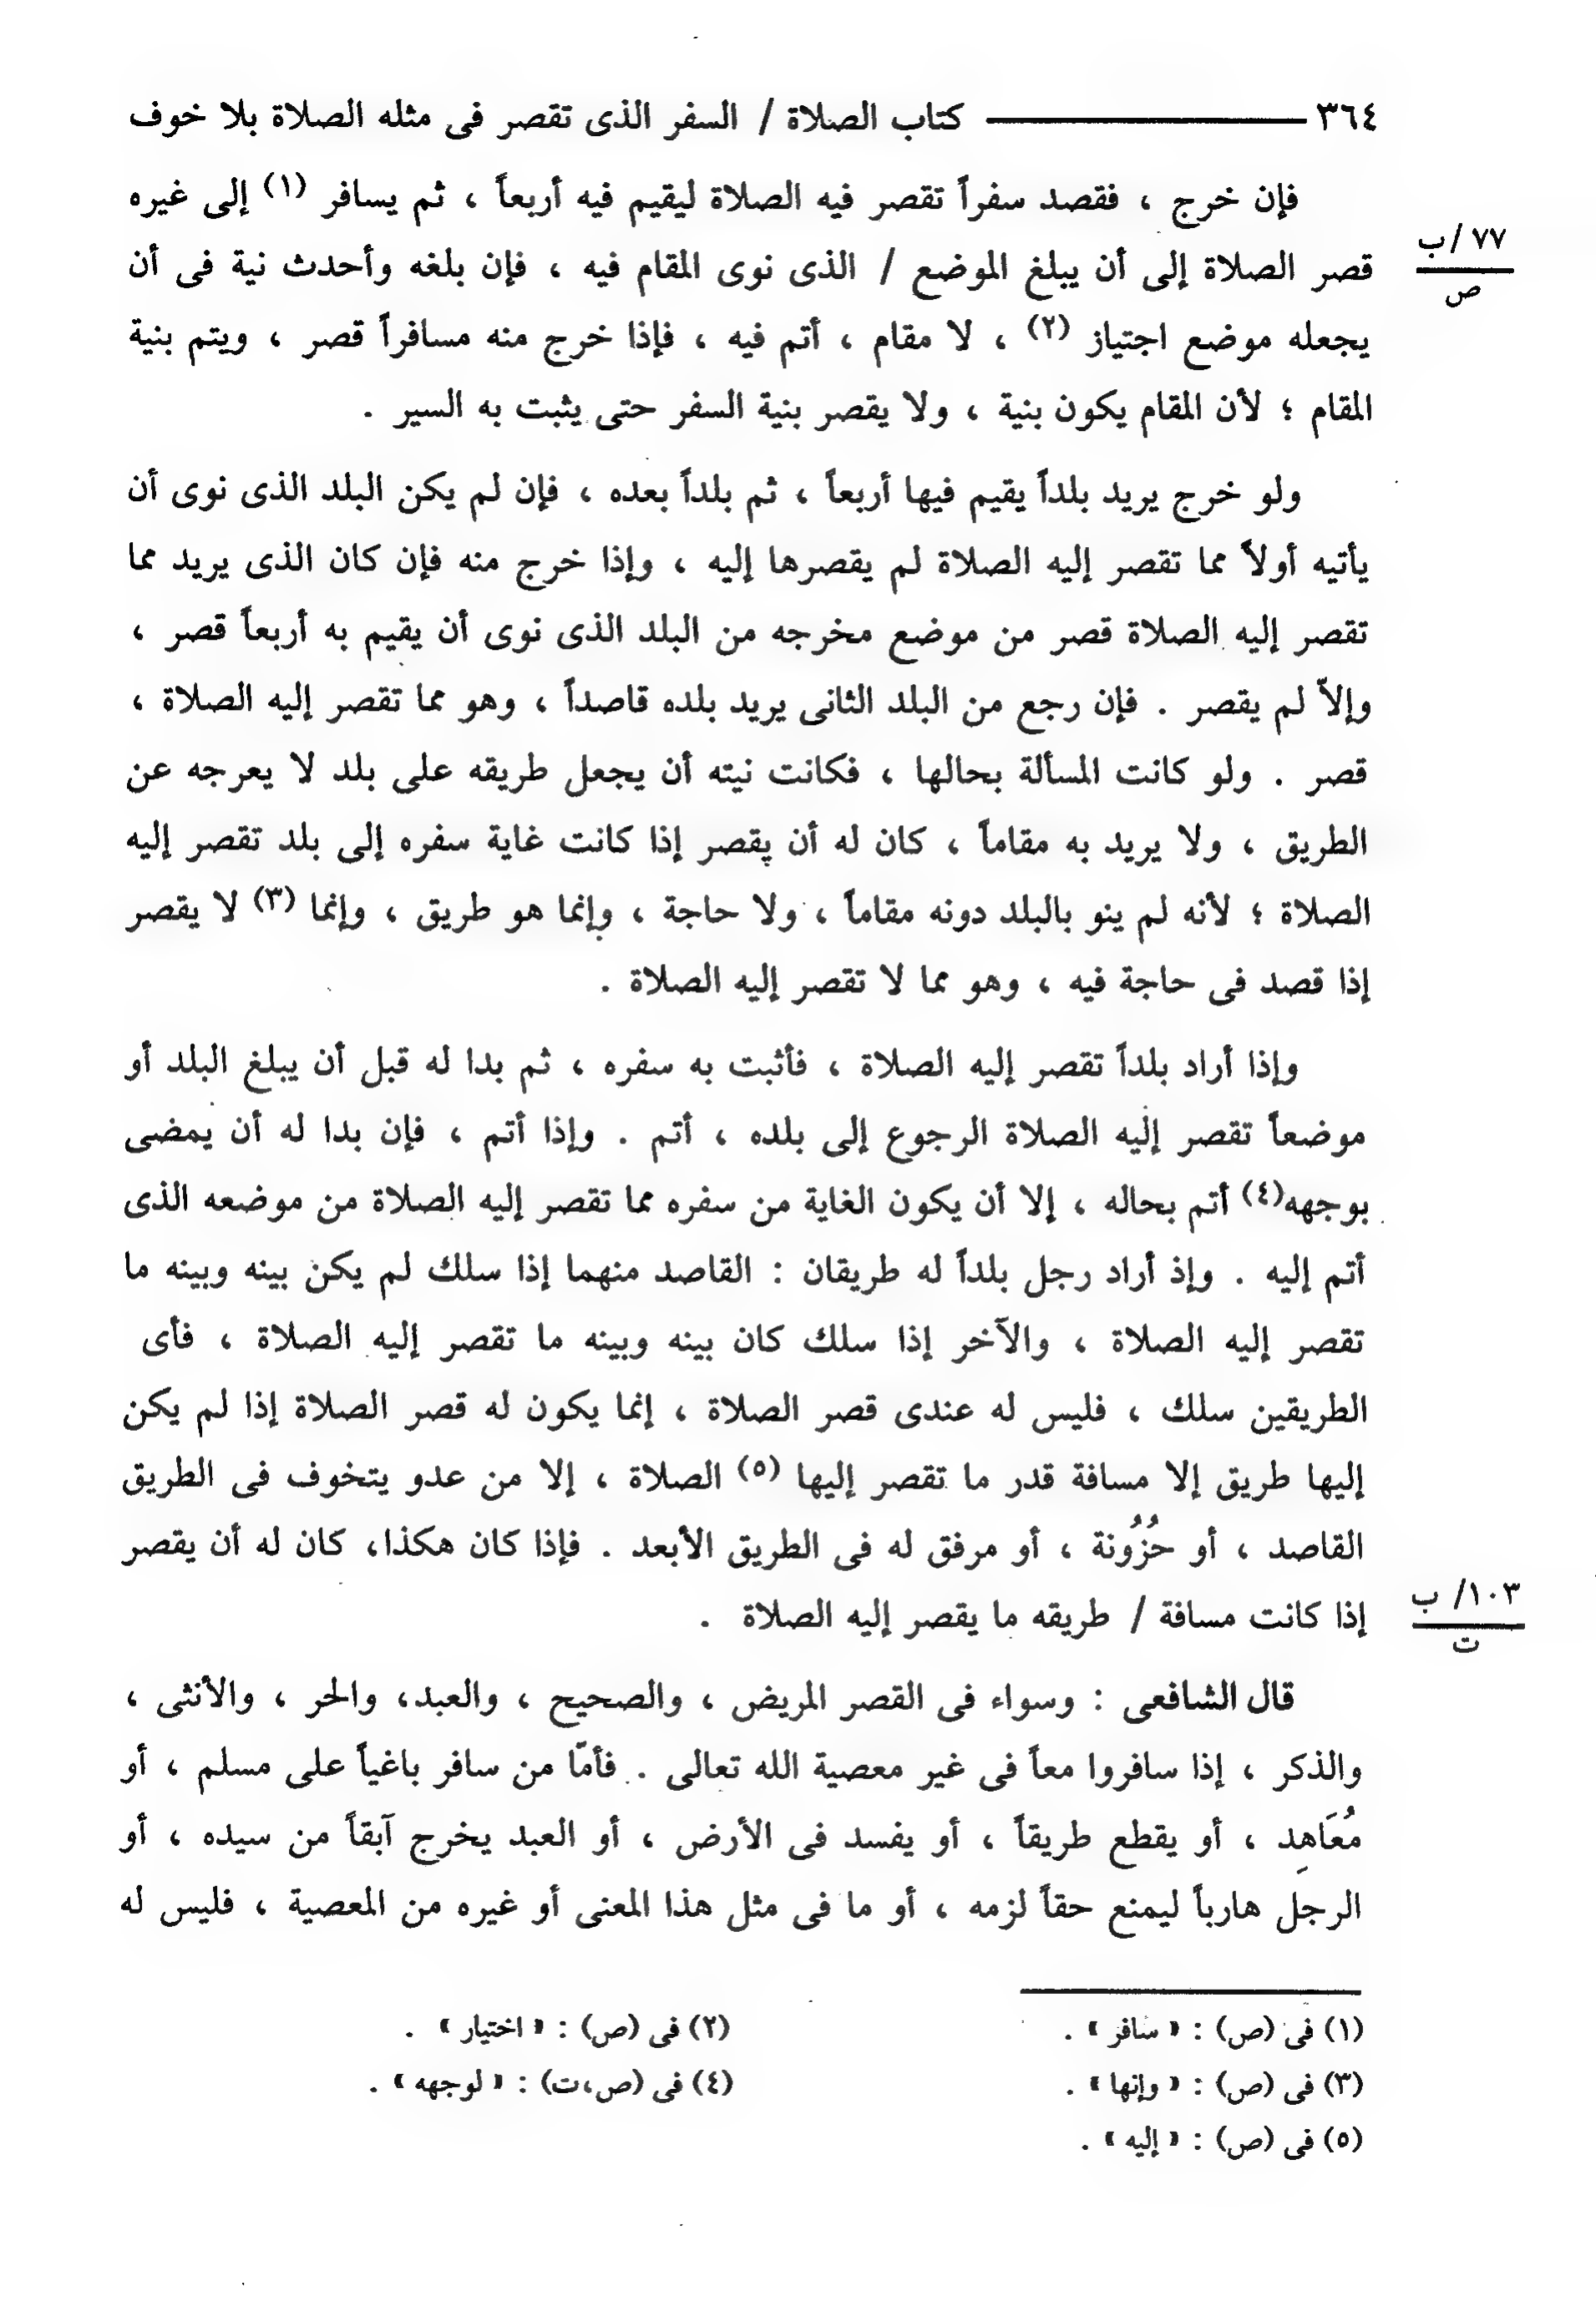 ٣٦٤ ــــــــــــ كتاب الصلاة / السفر الذى تقصر فى مثله الصلاة بلا خوف
فإن خرج ، فقصد سفراً تقصر فيه الصلاة ليقيم فيه أربعاً ، ثم يسافر (١) إلى غيره
٧٧ /ب
ص
قصر الصلاة إلى أن يبلغ الموضع / الذى نوى المقام فيه ، فإن بلغه وأحدث نية فى أن
يجعله موضع اجتياز (٢) ، لا مقام ، أتم فيه ، فإذا خرج منه مسافراً قصر ، ويتم بنية
المقام ؛ لأن المقام يكون بنية ، ولا يقصر بنية السفر حتى يثبت به السير .
ولو خرج يريد بلداً يقيم فيها أربعاً ، ثم بلداً بعده ، فإن لم يكن البلد الذى نوى أن
يأتيه أولاً مما تقصر إليه الصلاة لم يقصرها إليه ، وإذا خرج منه فإن كان الذى يريد مما
تقصر إليه الصلاة قصر من موضع مخرجه من البلد الذى نوى أن يقيم به أربعاً قصر ،
وإلاّ لم يقصر . فإن رجع من البلد الثانى يريد بلده قاصداً ، وهو مما تقصر إليه الصلاة ،
قصر . ولو كانت المسألة بحالها ، فكانت نيته أن يجعل طريقه على بلد لا يعرجه عن
الطريق ، ولا يريد به مقاماً ، كان له أن يقصر إذا كانت غاية سفره إلى بلد تقصر إليه
الصلاة ؛ لأنه لم ينو بالبلد دونه مقاماً ، ولا حاجة ، وإنما هو طريق ، وإنما (٣) لا يقصر
إذا قصد فى حاجة فيه ، وهو مما لا تقصر إليه الصلاة .
وإذا أراد بلداً تقصر إليه الصلاة ، فأثبت به سفره ، ثم بدا له قبل أن يبلغ البلد أو
موضعاً تقصر إليه الصلاة الرجوع إلى بلده ، أتم . وإذا أتم ، فإن بدا له أن يمضى
بوجهه(٤) أتم بحاله ، إلا أن يكون الغاية من سفره مما تقصر إليه الصلاة من موضعه الذى
أتم إليه . وإذ أراد رجل بلداً له طريقان : القاصد منهما إذا سلك لم يكن بينه وبينه ما
تقصر إليه الصلاة ، والآخر إذا سلك كان بينه وبينه ما تقصر إليه الصلاة ، فأى
الطريقين سلك ، فليس له عندى قصر الصلاة ، إنما يكون له قصر الصلاة إذا لم يكن
إليها طريق إلا مسافة قدر ما تقصر إليها (٥) الصلاة ، إلا من عدو يتخوف فى الطريق
القاصد ، أو حُزُونة ، أو مرفق له فى الطريق الأبعد . فإذا كان هكذا، كان له أن يقصر
١٠٣/ ب
ت
إذا كانت مسافة / طريقه ما يقصر إليه الصلاة .
قال الشافعى : وسواء فى القصر المريض ، والصحيح ، والعبد، والحر ، والأنثى ،
والذكر ، إذا سافروا معاً فى غير معصية الله تعالى . فأمّا من سافر باغياً على مسلم ، أو
مُعَاهِد ، أو يقطع طريقاً ، أو يفسد فى الأرض ، أو العبد يخرج آبقاً من سيده ، أو
الرجل هارباً ليمنع حقاً لزمه ، أو ما فى مثل هذا المعنى أو غيره من المعصية ، فليس له
(١) فى (ص) : « سافر » .
(٢) فى (ص) : « اختيار » .
(٣) فى (ص) : « وإنها » .
(٤) فى (ص،ت) : « لوجهه » .
(٥) فى (ص) : « إليه » .